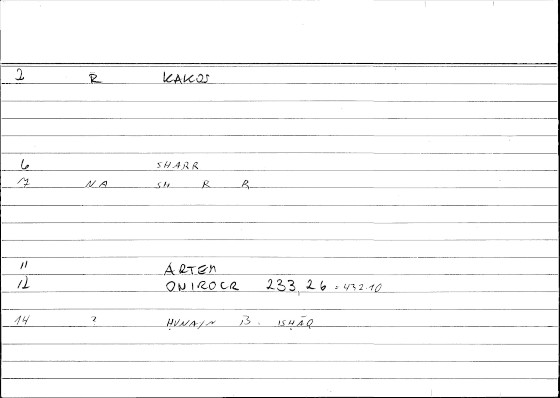 2 R KAKOS
6 SHARR
17 NA SH R R
11 ARTEM
12 ONIROCR 233, 26 = 432.10
14 ? ḤUNAYN B. ISḤĀQ